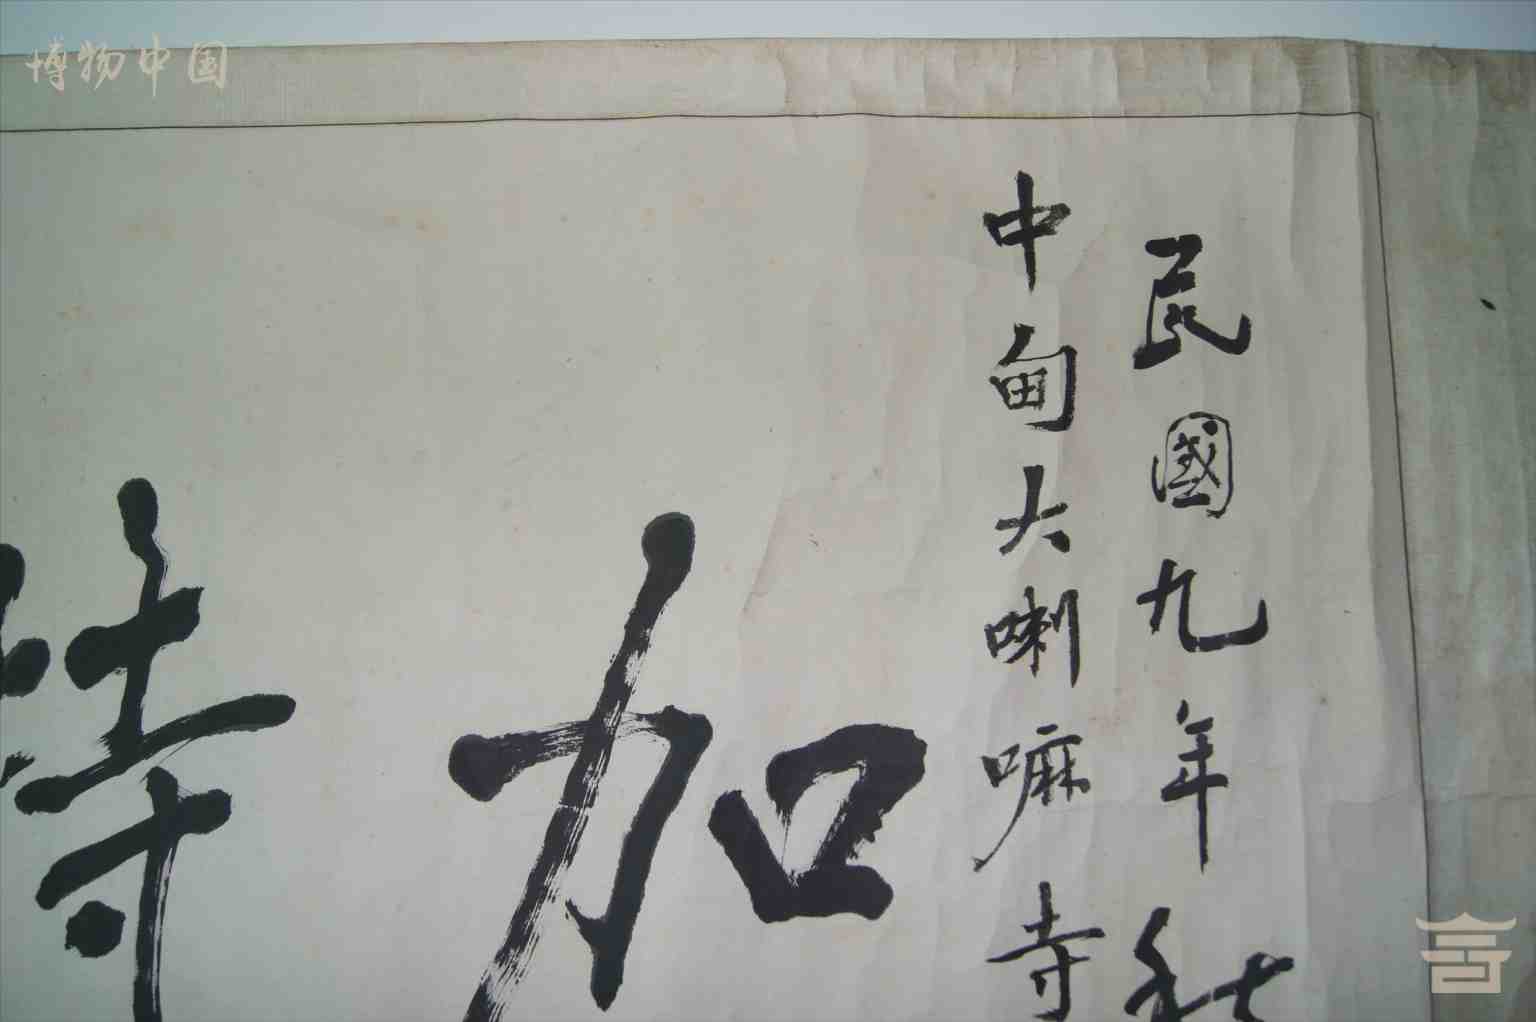 民國九年秋
中甸大喇嘛寺
加
特
博物中国